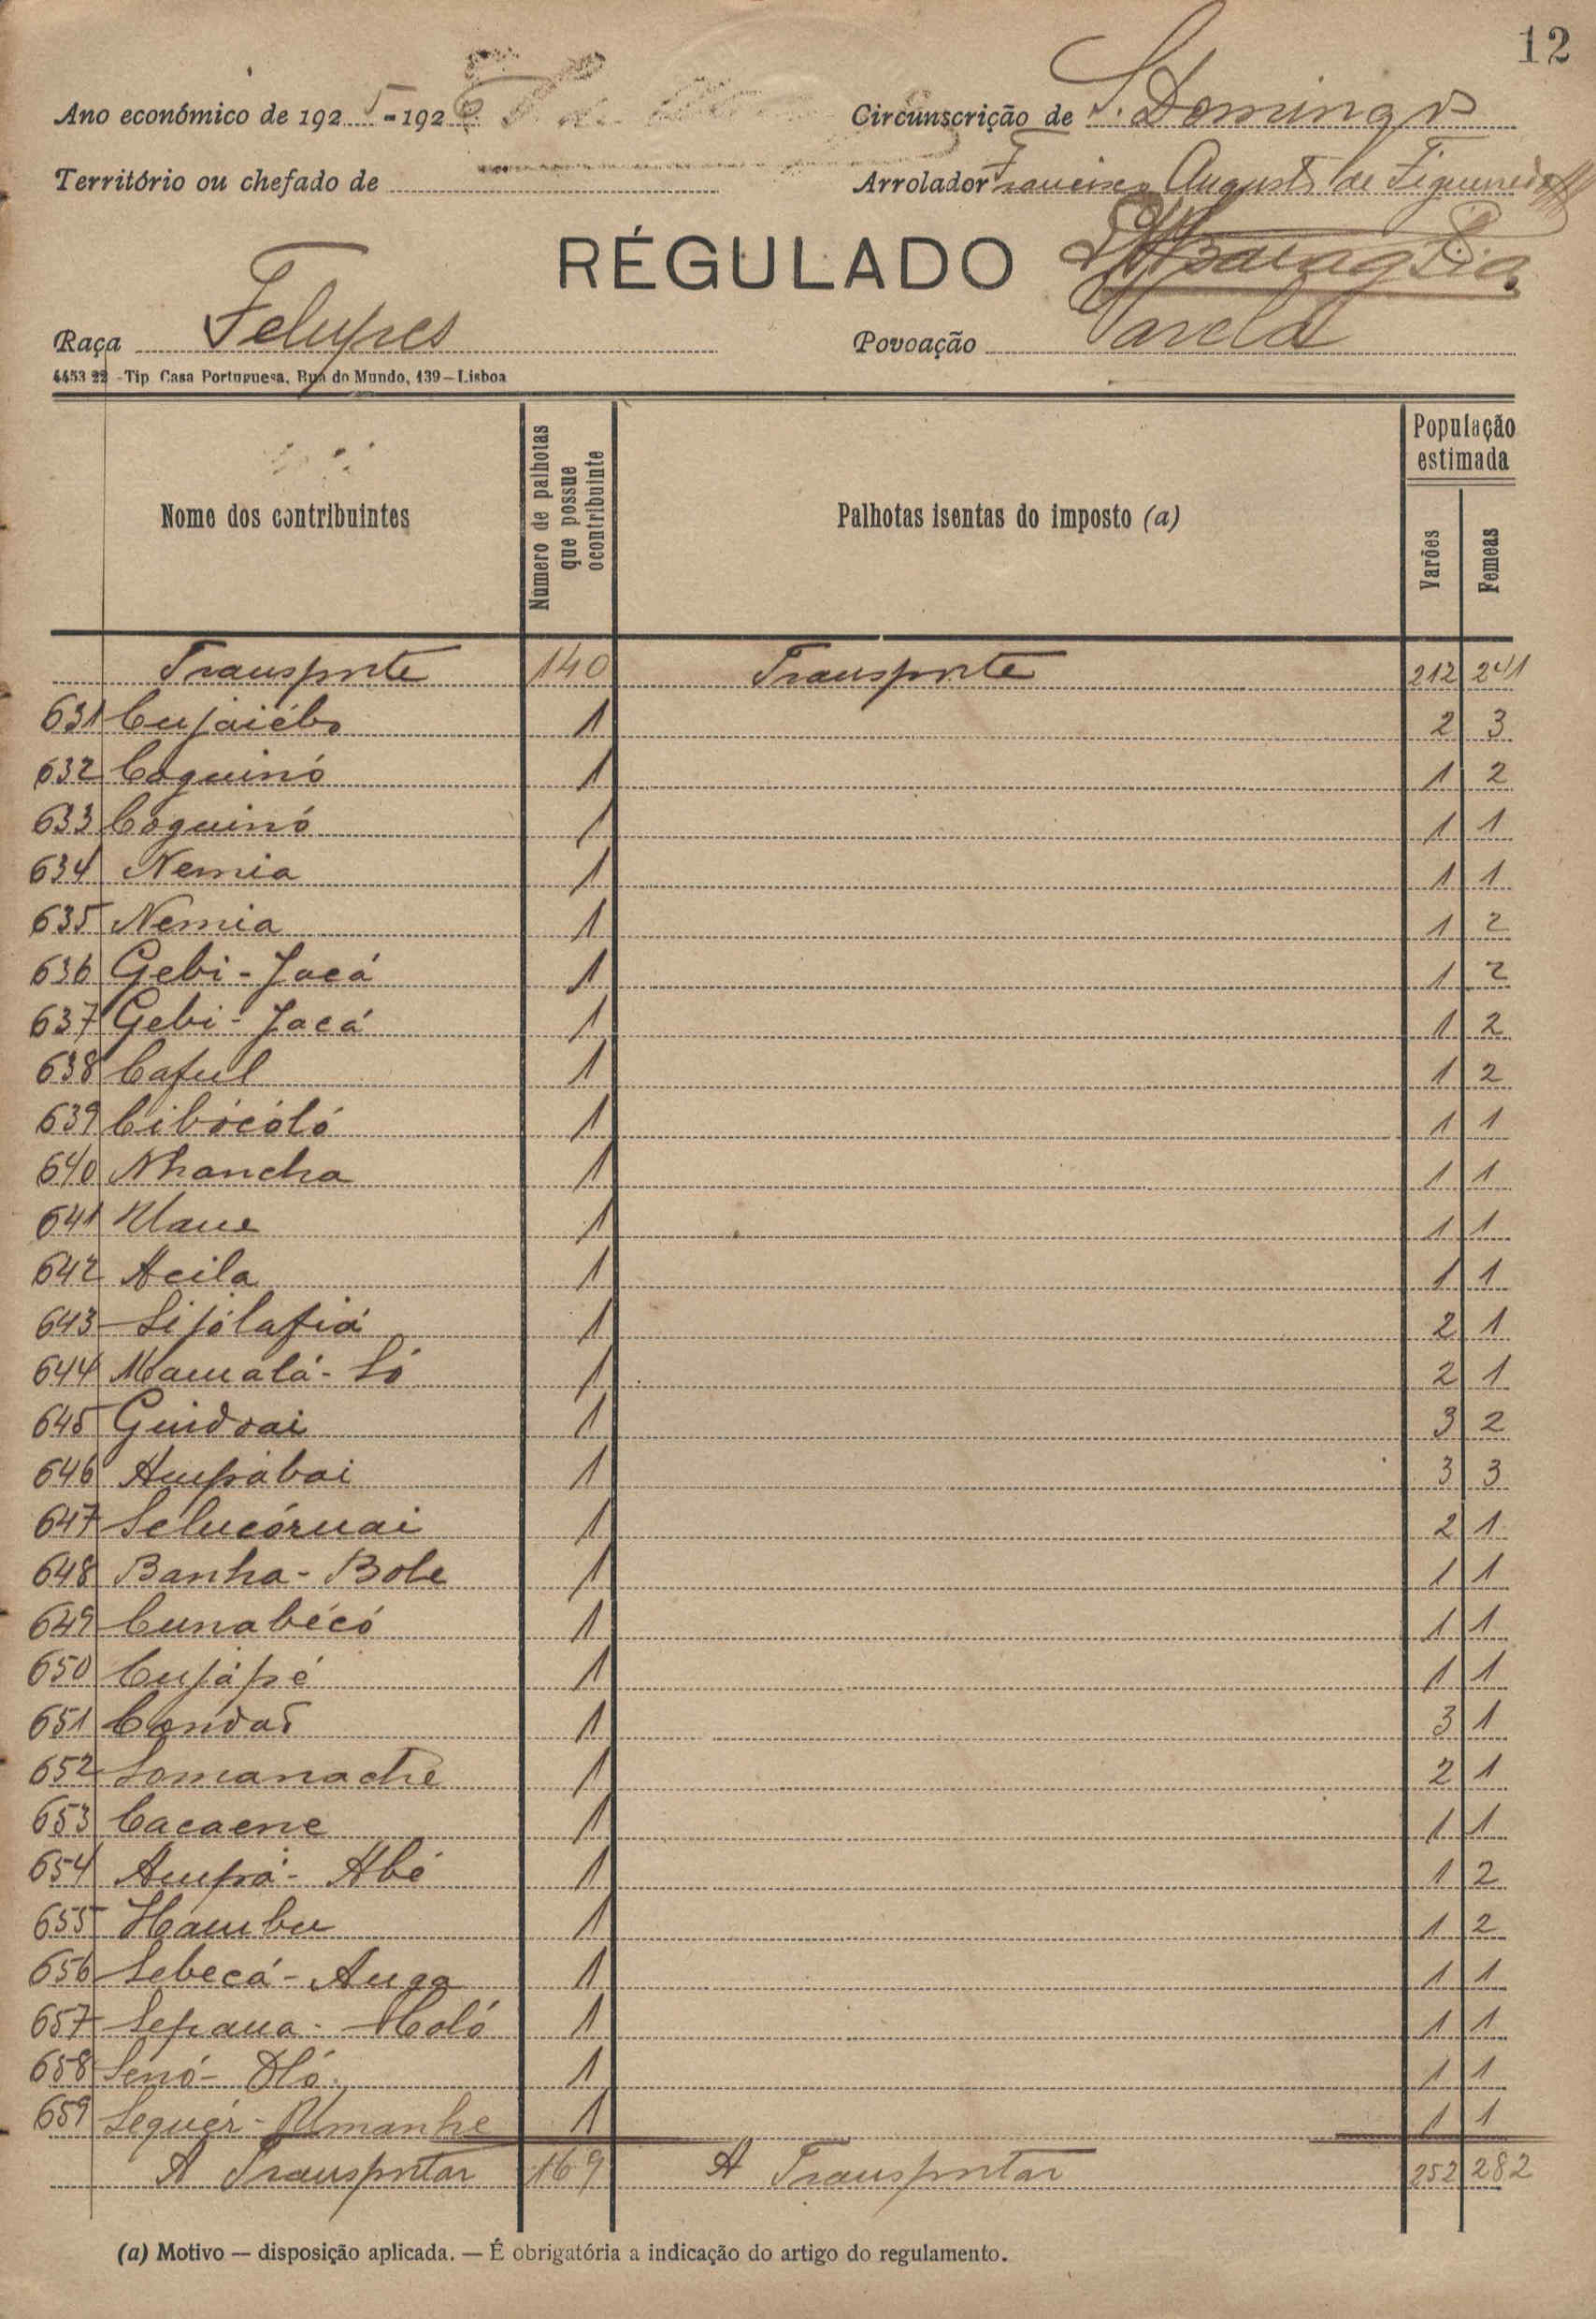 12
Ano económico de 1925-1926 Circunscrição de S. Domingos
Território ou chefado de Arrolador Francisco Augusto de Figueiredo
RÉGULADO
Raça Felupes Povoação Varela
4453 22 - Tip. Casa Portuguesa, Rua do Mundo, 139 - Lisboa
Nome dos contribuintes Número de palhotas que possue o contribuinte Palhotas isentas do imposto (a) População estimada Varões Femeas
Transporte 140 Transporte 212 241
631 Cujaiébo 1 2 3
632 Coquinó 1 1 2
633 Coquinó 1 1 1
634 Nemia 1 1 1
635 Nemia 1 1 2
636 Gebi - Jacá 1 1 2
637 Gebi - Jacá 1 1 2
638 Caful 1 1 2
639 Cibócóló 1 1 1
640 Nhancha 1 1 1
641 Uaue 1 1 1
642 Acila 1 1 1
643 Sijólafiá 1 2 1
644 Mamalá - Só 1 2 1
645 Guidoai 1 3 2
646 Ampábai 1 3 3
647 Selucóruai 1 2 1
648 Banha - Bole 1 1 1
649 Cunabécó 1 1 1
650 Cujápé 1 1 1
651 Condat 1 3 1
652 Somanache 1 2 1
653 Cacaene 1 1 1
654 Ampá - Abé 1 1 2
655 Hambu 1 1 2
656 Sebecá - Auga 1 1 1
657 Sepaua - Holó 1 1 1
658 Senó - Oló 1 1 1
659 Sequér - Umanhe 1 1 1
A Transportar 169 A Transportar 252 282
(a) Motivo — disposição aplicada. — É obrigatória a indicação do artigo do regulamento.